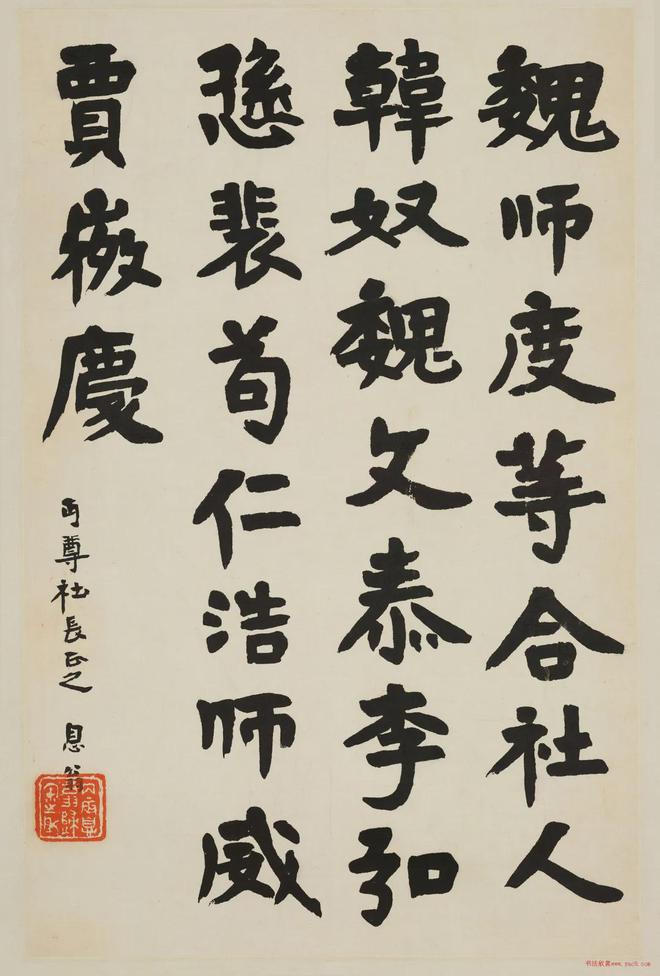 魏师度等合社人
韓奴魏文恭李弘
愻裴苟仁浩师威
賈㣲慶
丏尊社長正之 息翁
书法欣赏www.yac8.com